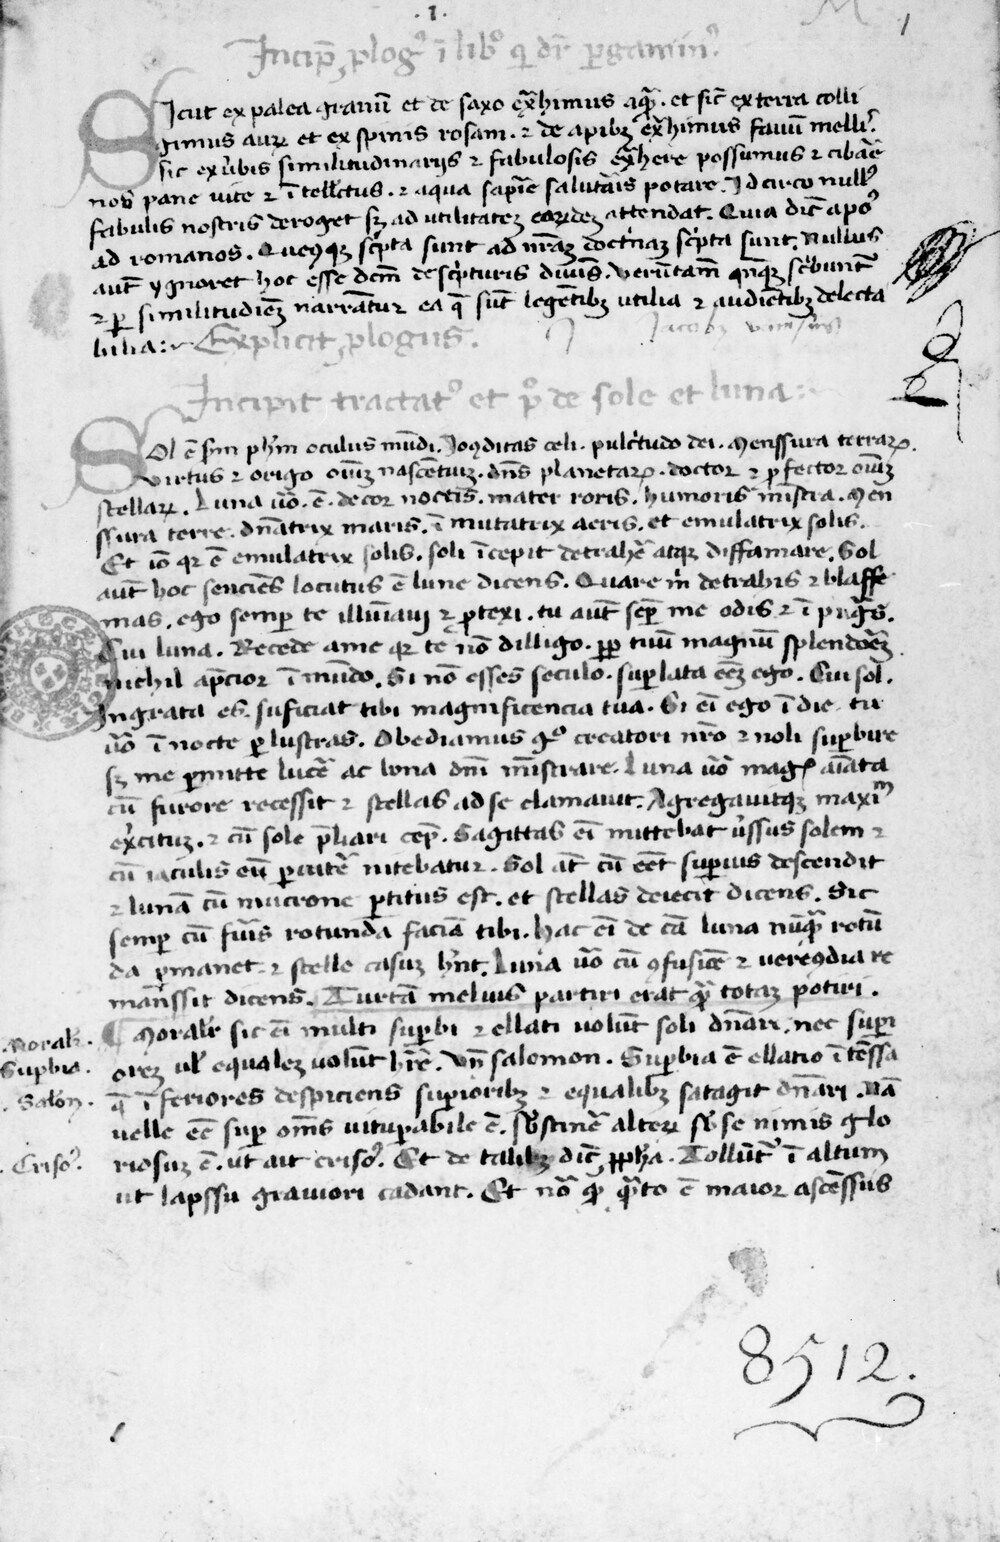 .1.
1
Incip̄ ꝓlogꝰ ī libº qi dr̄ pergaminꝰ.
Sicut ex palea granū et de saxo ext̄ᵃhimus aqᵃ. et sic̄ ex terra colli
gimus auꝝ et ex spinis rosam. ⁊ de apibꝫ ext̄ᵃhimus fauū mellis.
sic ex v̾bis similitudinarijs ⁊ fabulosis ext̄ᵃhere possumus ⁊ cibare
nos pane vite ⁊ ītellc̄tus. ⁊ aqua sapīe salutar̄is potare. Idcirco nullꝰ
fabulis nostris deroget sꝫ ad utilitateꝫ eaꝝdeꝫ attendat. Quia dic̄ apoꝰ
ad romanos. Quecūqꝫ sc̄pta sunt ad nr̄aꝫ doctrinaꝫ sc̄pta sunt. Nullus
aut̄ ygnoret hoc esse dc̄m de sc̄pturis diuīs. verūtam̄ qn̄qꝫ sc̄bunt̄
⁊ ꝑ similitudīeꝫ narrantur ea q̄ sūt legētibꝫ utilia ⁊ audiētibꝫ delecta
bilia:~ Explicit ꝓlogus.
Incipit tractatꝰ et pº de sole et luna:~
Sol ē sm̄ ph̄m oculus mūdi. Iocūditas celi. pulcr̄tudo dei. Menssura terraꝝ.
virtus ⁊ origo oīuꝫ nascētiuꝫ. dn̄s planetaꝝ. doctor ⁊ ꝑfector oīuꝫ
stellaꝝ. Luna ūo. ē. decor noctis. mater roris. humoris mīstra. Men
ssura terre. dn̄atrix maris. īmutatrix aeris. et emulatrix solis.
Et iō qꝛ ē emulatrix solis. soli īcepit detrahē atqꝫ diffamare. Sol
aut̄ hoc sencies locutus ē lune dicens. Quare m̄ detrahis ⁊ blaffe
mas. ego semper te illuīauj ⁊ ꝓtexi. tu aut̄ sēꝑ me odis ⁊ ī
Cui luna. Recede a me qꝛ te nō dilligo. ꝓꝑ tuū magnū splendorēꝫ
nichil ap̄cior ī mūdo. Si nō esses ī seculo. suꝑlata eēꝫ ego. Cui sol.
Ingrata es. suficiat tibi magnificencia tua. Si eī ego ī die. tu
ūo ī nocte ꝑlustras. Obediamus gº creatori nr̄o ⁊ noli suꝑbire
sꝫ me ꝑmitte lucē ac bona dn̄i mīstrare. Luna ūo magꝭ aīata
cū furore recessit ⁊ stellas ad se clamauit. Agregauitqꝫ maximᵐ
ex̾cituꝫ. ⁊ cū sole p̄liari cep̄. Sagittas eī mittebat v̾ssus solem ⁊
cū iaculis eū ꝑcutē nitebatur. Sol at̄ cū eēt suꝑius descendit
⁊ lunā cū mucrone ꝑtitus est. et stellas deiecit dicens. Sic
semper cū fuīs rotundā faciā tibi. Hac eī de cā luna nūqᵃ rotū
da ꝑmanet. ⁊ stelle casuꝫ hn̄t. Luna ūo cū ꝯfusiōe ⁊ verecūdia re
manssit dicens. Turtā melius partiri erat qᵃ totaꝫ potiri.
¶ Moralr̄ sic eī multi suꝑbi ⁊ ellati volūt soli dn̄ari. nec suꝑi
oreꝫ ul̄ equaleꝫ volūt hr̄e. Vn̄ salomon. Suꝑbia ē ellatio ītēssa
q̄ īferiores despiciens suꝑioribꝫ ⁊ equalibꝫ satagit dn̄ari. Nā
velle eē suꝑ om̄s vituꝑabile ē. sustinē alteꝝ se nimis glo
riosuꝫ ē. ut ait crisoꝰ. Et de talibꝫ dic̄ ꝓph̄a. Tollūt̄ ī altum
ut lapssu grauiori cadant. Et nō qꝛ qᵃto ē maior ascēssus
Moralꝭ.
Suꝑbia.
Salōn.
Crisoꝰ.
8512.